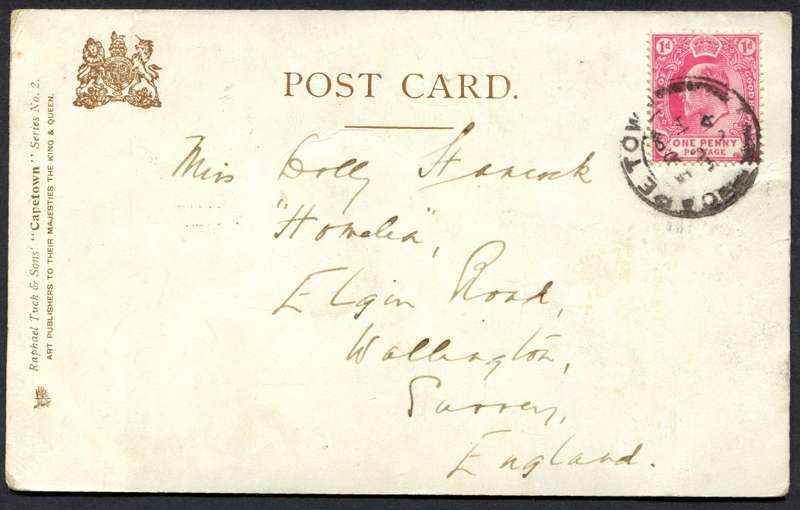 POST CARD.
1d 1d
GOOD
ONE PENNY
POSTAGE
CAPE TOWN
Miss Dolly Hancock
"Homelea",
Elgin Road,
Wallington,
Surrey,
England.
Raphael Tuck & Sons' "Capetown" Series No. 2.
ART PUBLISHERS TO THEIR MAJESTIES THE KING & QUEEN.